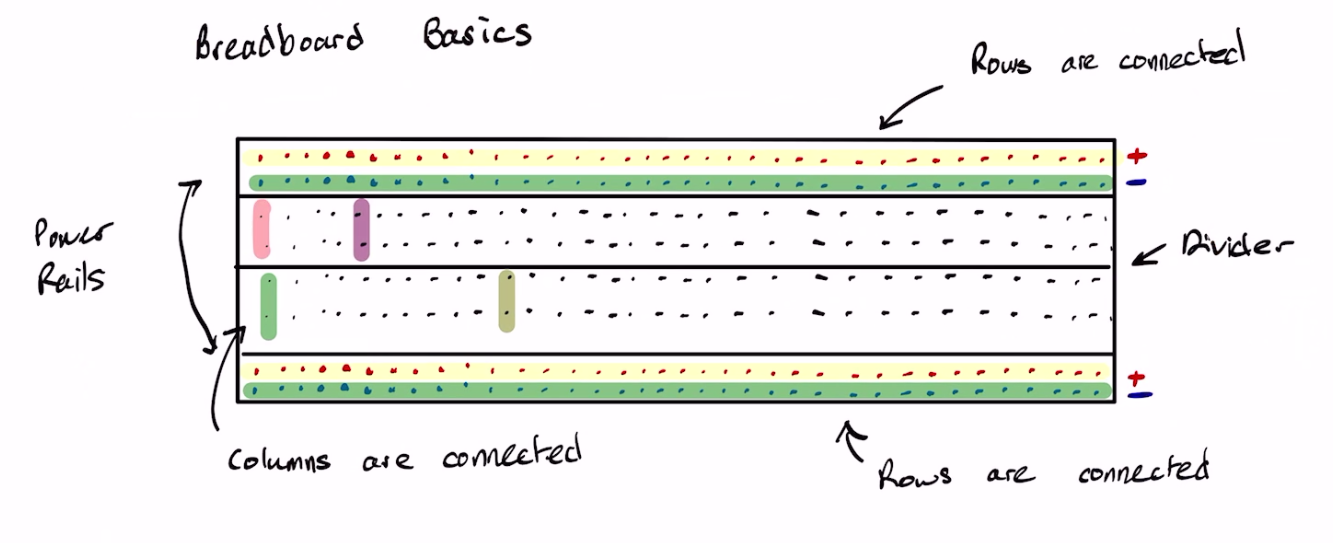 Breadboard Basics
Rows are connected
+
-
Power
Rails
Divider
+
-
Columns are connected
Rows are connected